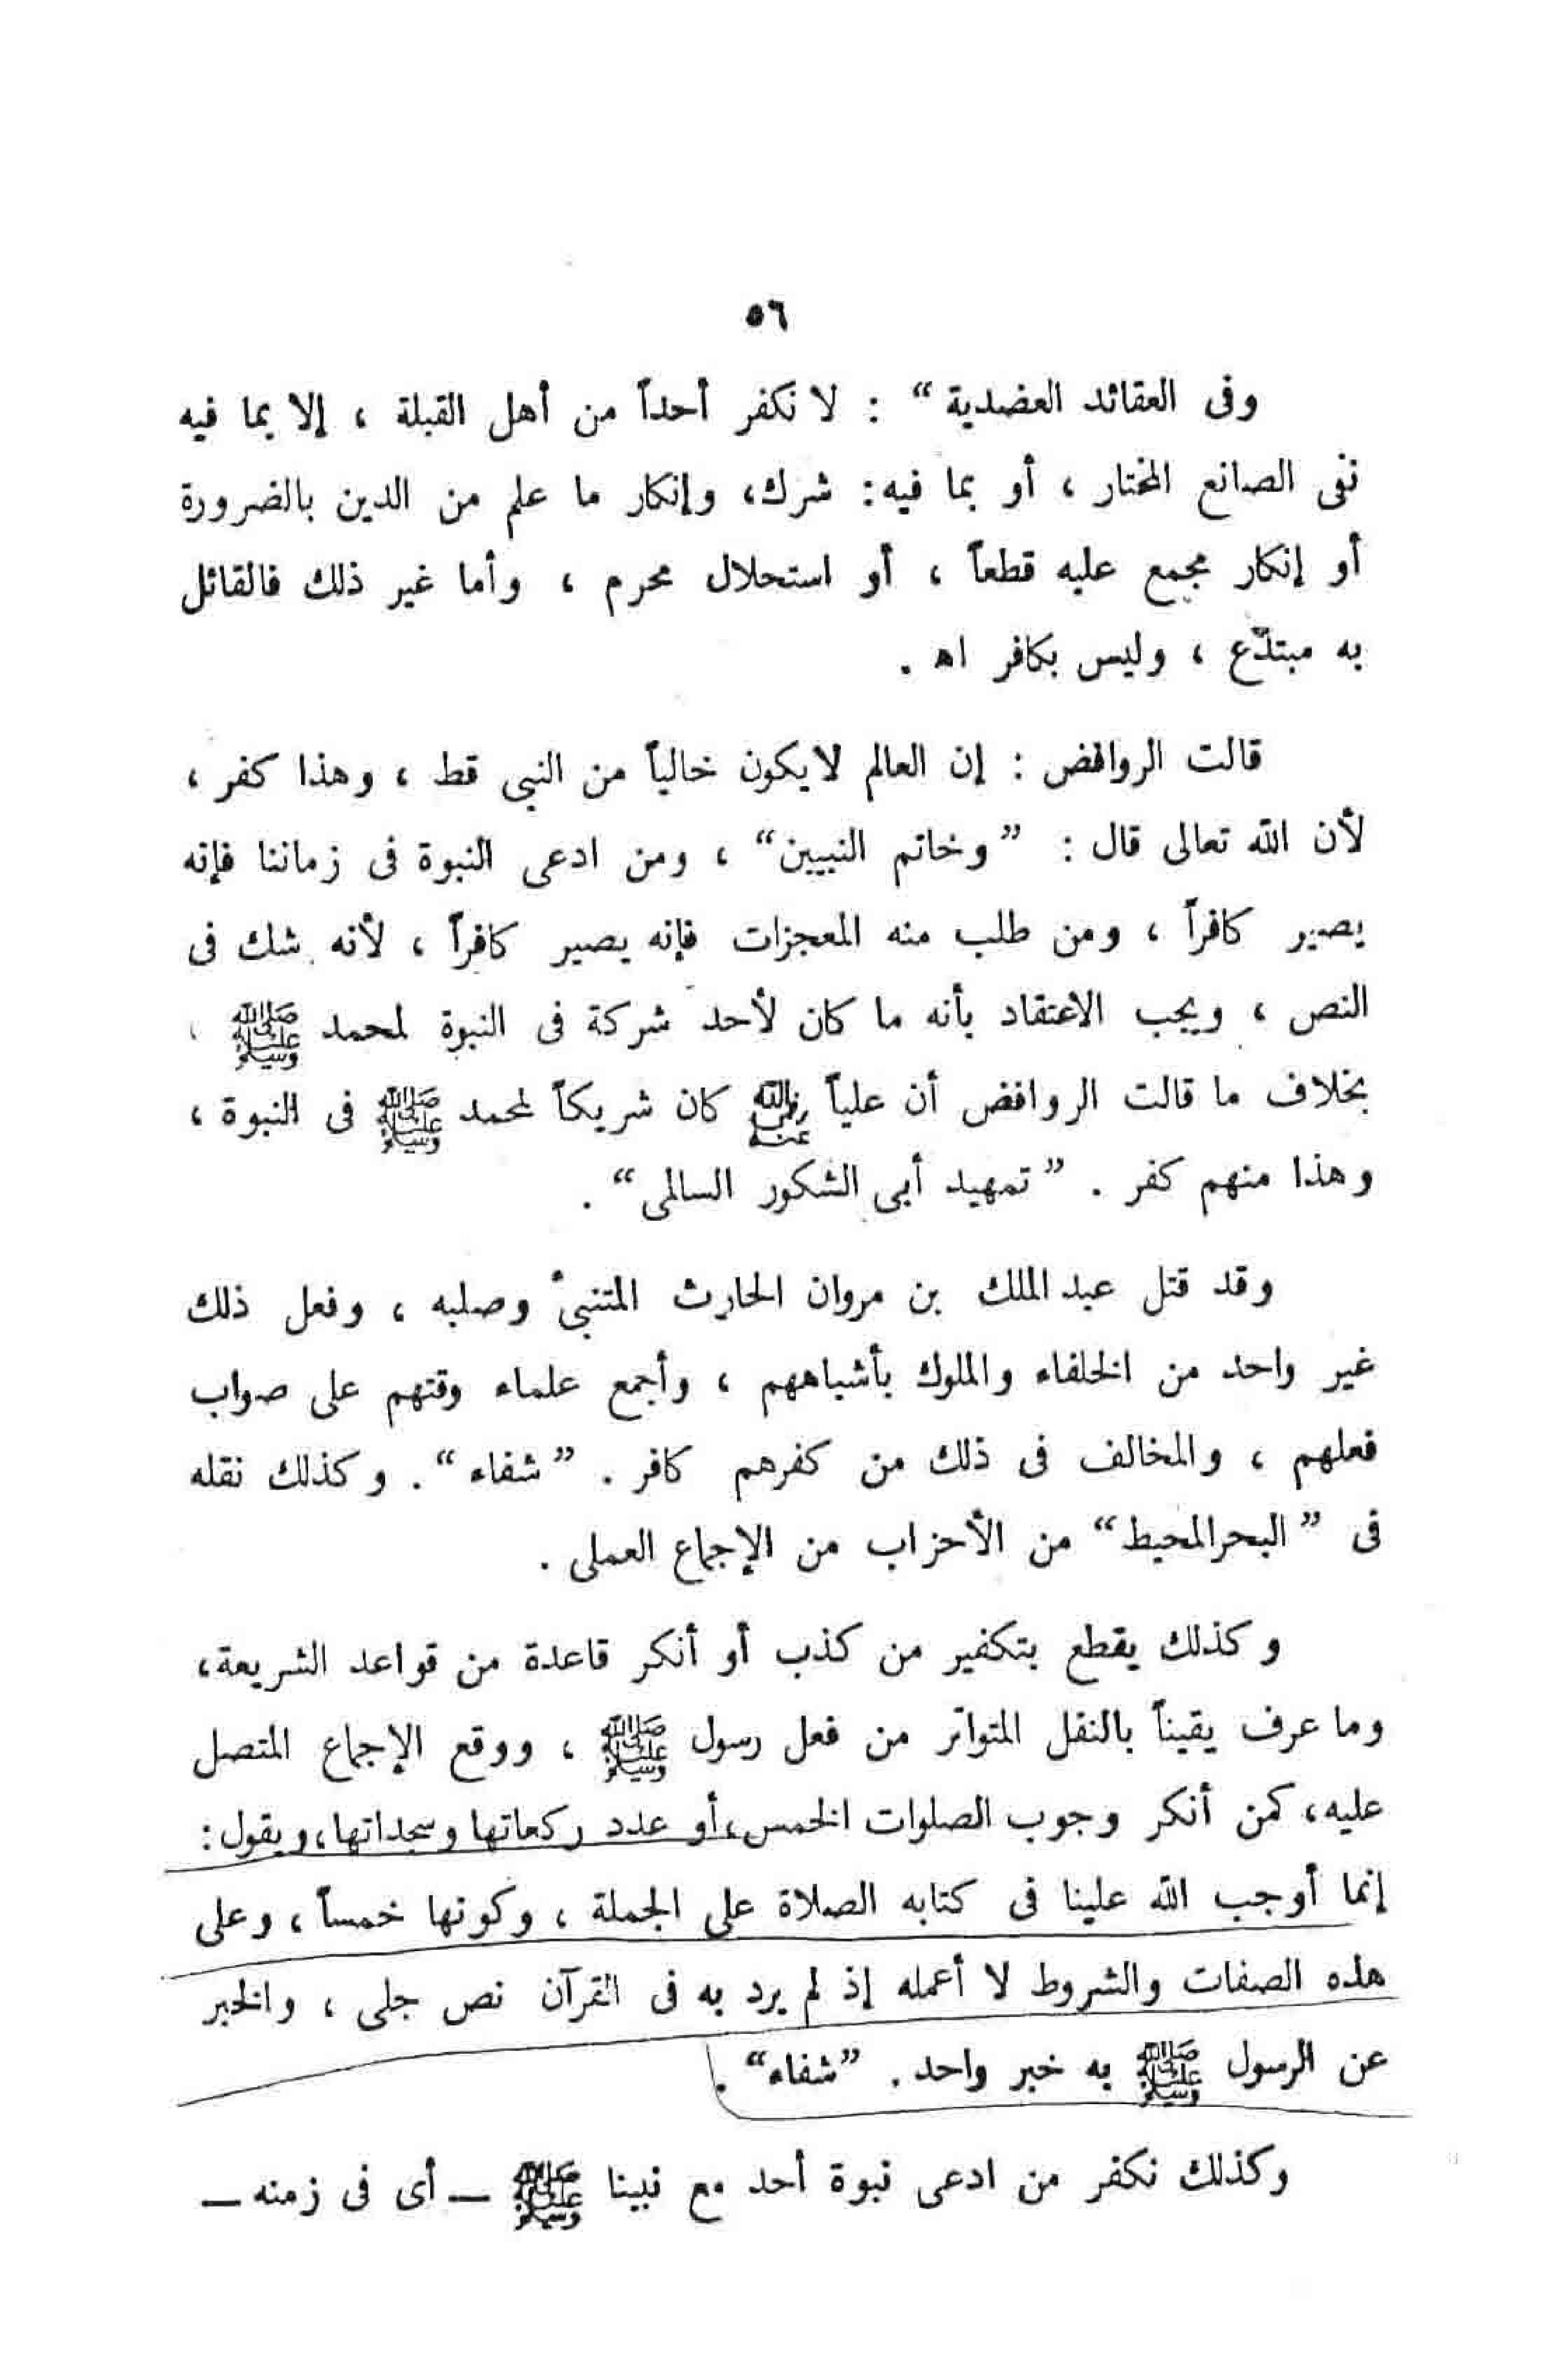 ٥٦
وفى العقائد العضدية“ : لا نكفر أحداً من أهل القبلة ، إلا بما فيه
نفى الصانع المختار ، أو بما فيه: شرك، وإنكار ما علم من الدين بالضرورة
أو إنكار مجمع عليه قطعاً ، أو استحلال محرم ، وأما غير ذلك فالقائل
به مبتدّع ، وليس بكافر اه .
قالت الروافض : إن العالم لا يكون خالياً من النبى قط ، وهذا كفر ،
لأن الله تعالى قال : ”وخاتم النبيين“ ، ومن ادعى النبوة فى زماننا فإنه
يصير كافراً ، ومن طلب منه المعجزات فإنه يصير كافراً ، لأنه شك فى
النص ، ويجب الاعتقاد بأنه ما كان لأحد شركة فى النبوة لمحمد ﷺ ،
بخلاف ما قالت الروافض أن علياً رضي الله عنه كان شريكاً لمحمد ﷺ فى النبوة ،
وهذا منهم كفر . ”تمهيد أبى الشكور السالمى“ .
وقد قتل عبد الملك بن مروان الحارث المتنبئ وصلبه ، وفعل ذلك
غير واحد من الخلفاء والملوك بأشباههم ، وأجمع علماء وقتهم على صواب
فعلهم ، والمخالف فى ذلك من كفرهم كافر . ”شفاء“ . وكذلك نقله
فى ”البحرالمحيط“ من الأحزاب من الإجماع العملى .
وكذلك يقطع بتكفير من كذب أو أنكر قاعدة من قواعد الشريعة،
وما عرف يقيناً بالنقل المتواتر من فعل رسول ﷺ ، ووقع الإجماع المتصل
عليه، كمن أنكر وجوب الصلوات الخمس، أو عدد ركعاتها وسجداتها، ويقول:
إنما أوجب الله علينا فى كتابه الصلاة على الجملة ، وكونها خمساً ، وعلى
هذه الصفات والشروط لا أعمله إذ لم يرد به فى القرآن نص جلى ، والخبر
عن الرسول ﷺ به خبر واحد . ”شفاء“ .
وكذلك نكفر من ادعى نبوة أحد مع نبينا ﷺ ــ أى فى زمنه ــ